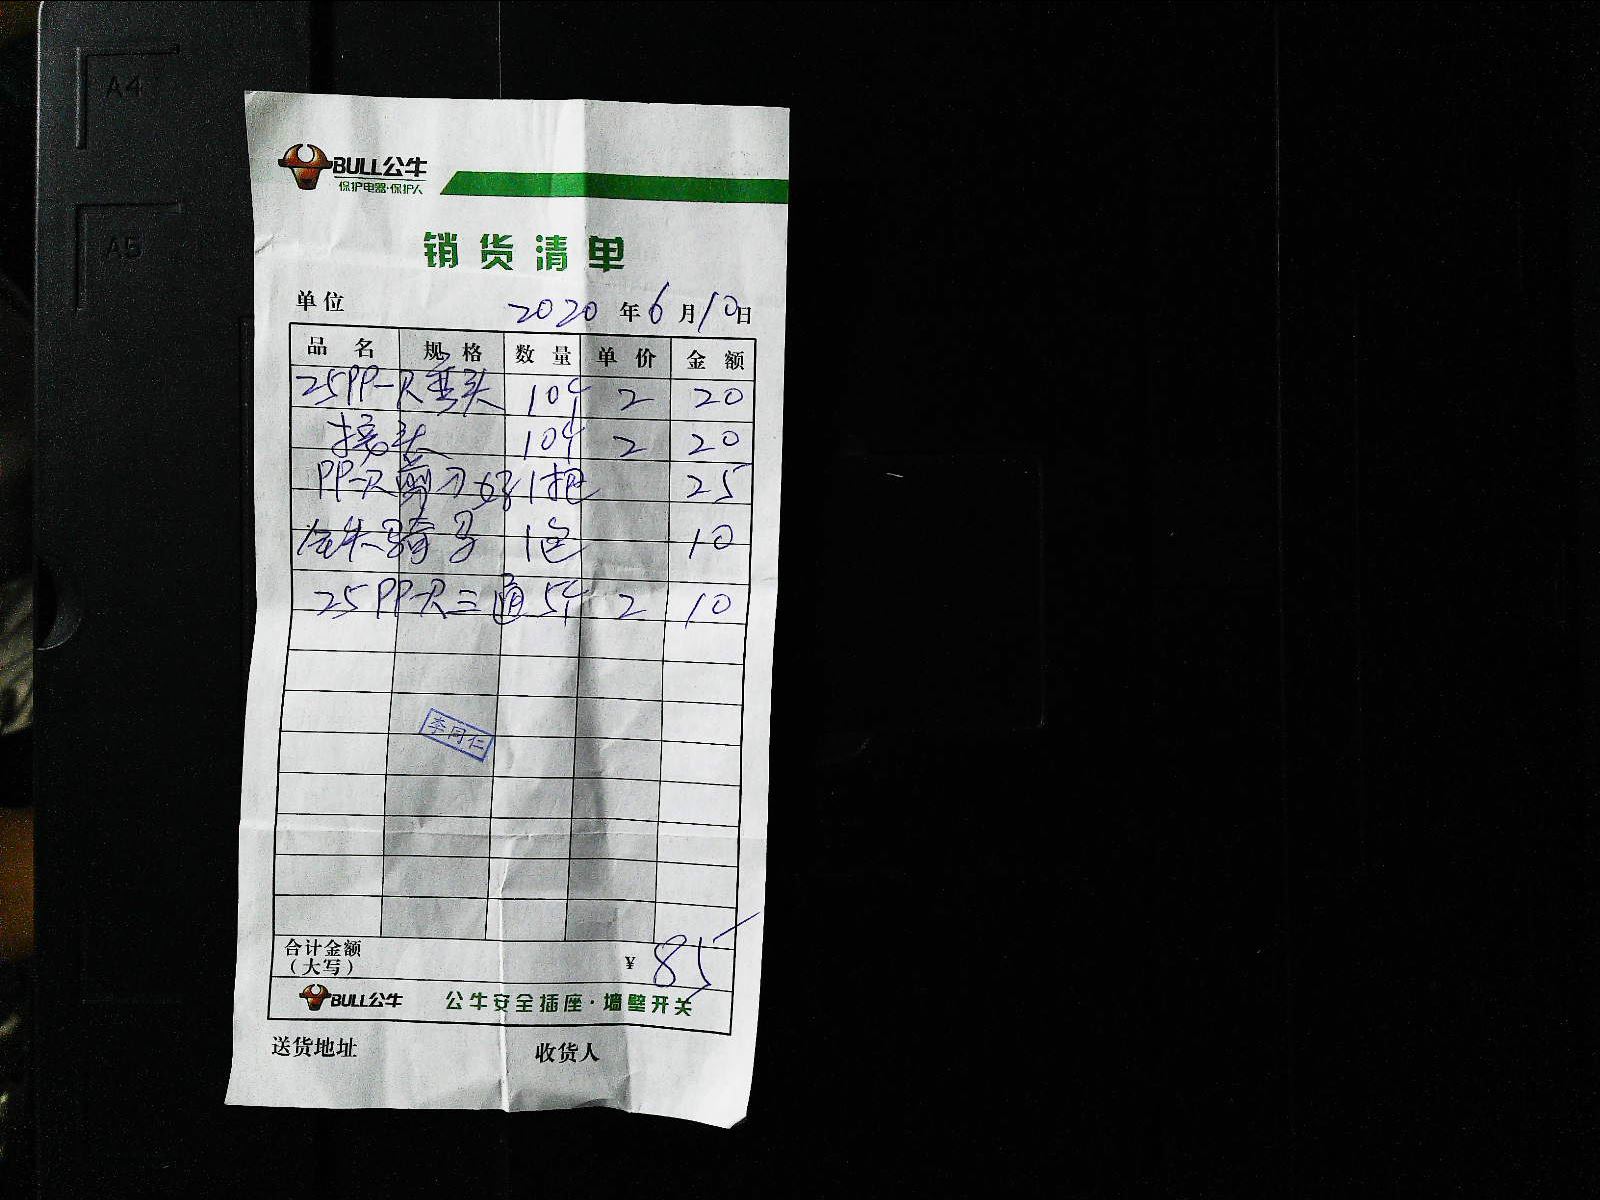 A4
A5
BULL公牛
保护电器·保护人
销货清单
单位 2020年6月10日
品名 规格 数量 单价 金额
25PP-R弯头 10个 2 20
接头 10个 2 20
PP-R剪刀 1把 25
骑马 1包 10
25PP-R三通 5个 2 10
李同仁
合计金额
(大写) ¥ 85
BULL公牛 公牛安全插座·墙壁开关
送货地址 收货人